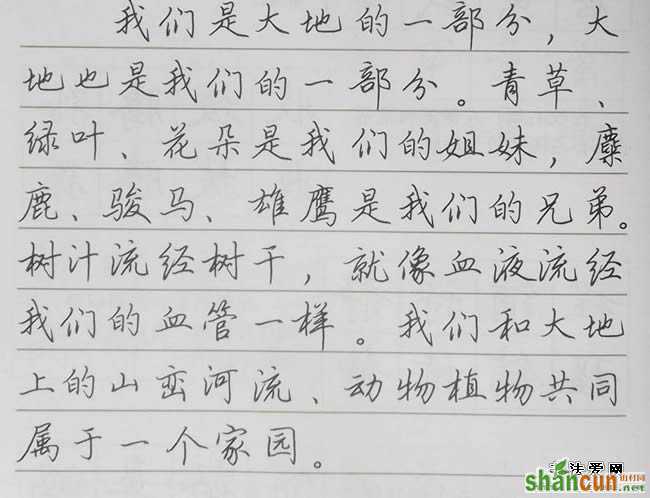 我们是大地的一部分，大
地也是我们的一部分。青草、
绿叶、花朵是我们的姐妹，麋
鹿、骏马、雄鹰是我们的兄弟。
树汁流经树干，就像血液流经
我们的血管一样。我们和大地
上的山峦河流、动物植物共同
属于一个家园。
法爱网
shancun